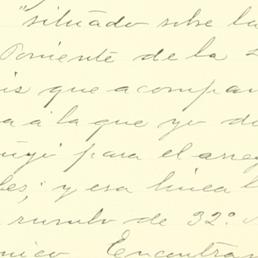 "situado sobre la
Poniente de la
que acompañ
a á la que yo de
para el arreg
es; y esa línea
rumbo de 32°
Encontra